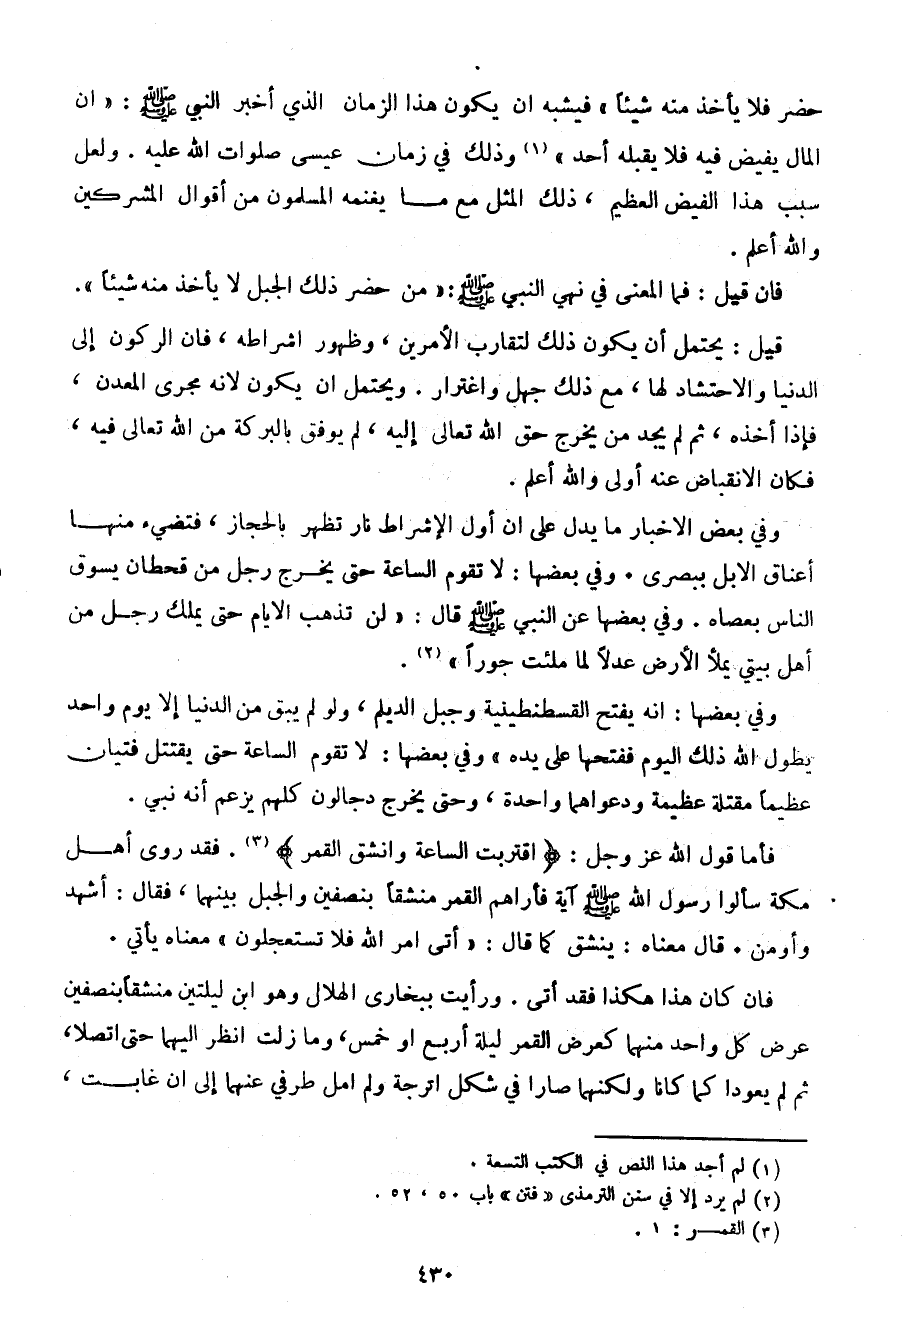 حضر فلا يأخذ منه شيئاً » فيشبه ان يكون هذا الزمان الذي أخبر النبي ﷺ : « ان
المال يفيض فيه فلا يقبله أحد » (١) وذلك في زمان عيسى صلوات الله عليه . ولعل
سبب هذا الفيض العظيم ، ذلك المثل مع مـا يغنمه المسلمون من أقوال المشركين
والله أعلم .
فان قيل : فما المعنى في نهي النبي ﷺ : « من حضر ذلك الجبل لا يأخذ منه شيئاً ».
قيل : يحتمل أن يكون ذلك لتقارب الأمرين ، وظهور اشراطه ، فان الركون إلى
الدنيا والاحتشاد لها ، مع ذلك جهل واغترار . ويحتمل ان يكون لانه مجرى المعدن ،
فإذا أخذه ، ثم لم يجد من يخرج حق الله تعالى إليه ، لم يوفق بالبركة من الله تعالى فيه ،
فكان الانقباض عنه أولى والله أعلم .
وفي بعض الاخبار ما يدل على ان أول الإشراط نار تظهر بالحجاز ، فتضيء منهـا
أعناق الابل ببصرى . وفي بعضها : لا تقوم الساعة حتى يخـرج رجل من قحطان يسوق
الناس بعصاه . وفي بعضها عن النبي ﷺ قال : « لن تذهب الايام حتى يملك رجـل من
أهل بيتي يملأ الأرض عدلاً لما ملئت جوراً » (٢) .
وفي بعضها : انه يفتح القسطنطينية وجبل الديلم ، ولو لم يبق من الدنيا إلا يوم واحد
يطول الله ذلك اليوم ففتحها على يده » وفي بعضها : لا تقوم الساعة حتى يقتتل فتيان
عظيما مقتلة عظيمة ودعواهما واحدة ، وحتى يخرج دجالون كلهم يزعم أنه نبي .
فأما قول الله عز وجل : ﴿ اقتربت الساعة وانشق القمر ﴾ (٣) . فقد روى أهـل
مكة سألوا رسول الله ﷺ آية فأراهم القمر منشقاً بنصفين والجبل بينهما ، فقال : أشهد
وأومن . قال معناه : ينشق كما قال : « أتى امر الله فلا تستعجلون » معناه يأتي .
فان كان هذا هكذا فقد أتى . ورأيت ببخارى الهلال وهو ابن ليلتين منشقاً بنصفين
عرض كل واحد منهما كعرض القمر ليلة أربع او خمس، وما زلت انظر اليهما حتى اتصلا،
ثم لم يعودا كما كانا ولكنهما صارا في شكل اترجة ولم امل طرفي عنهما إلى ان غابـت ،
(١) لم أجد هذا النص في الكتب التسعة .
(٢) لم يرد إلا في سنن الترمذى « فتن » باب ٥٠ ، ٥٢ .
(٣) القمـر : ١ .
٤٣٠